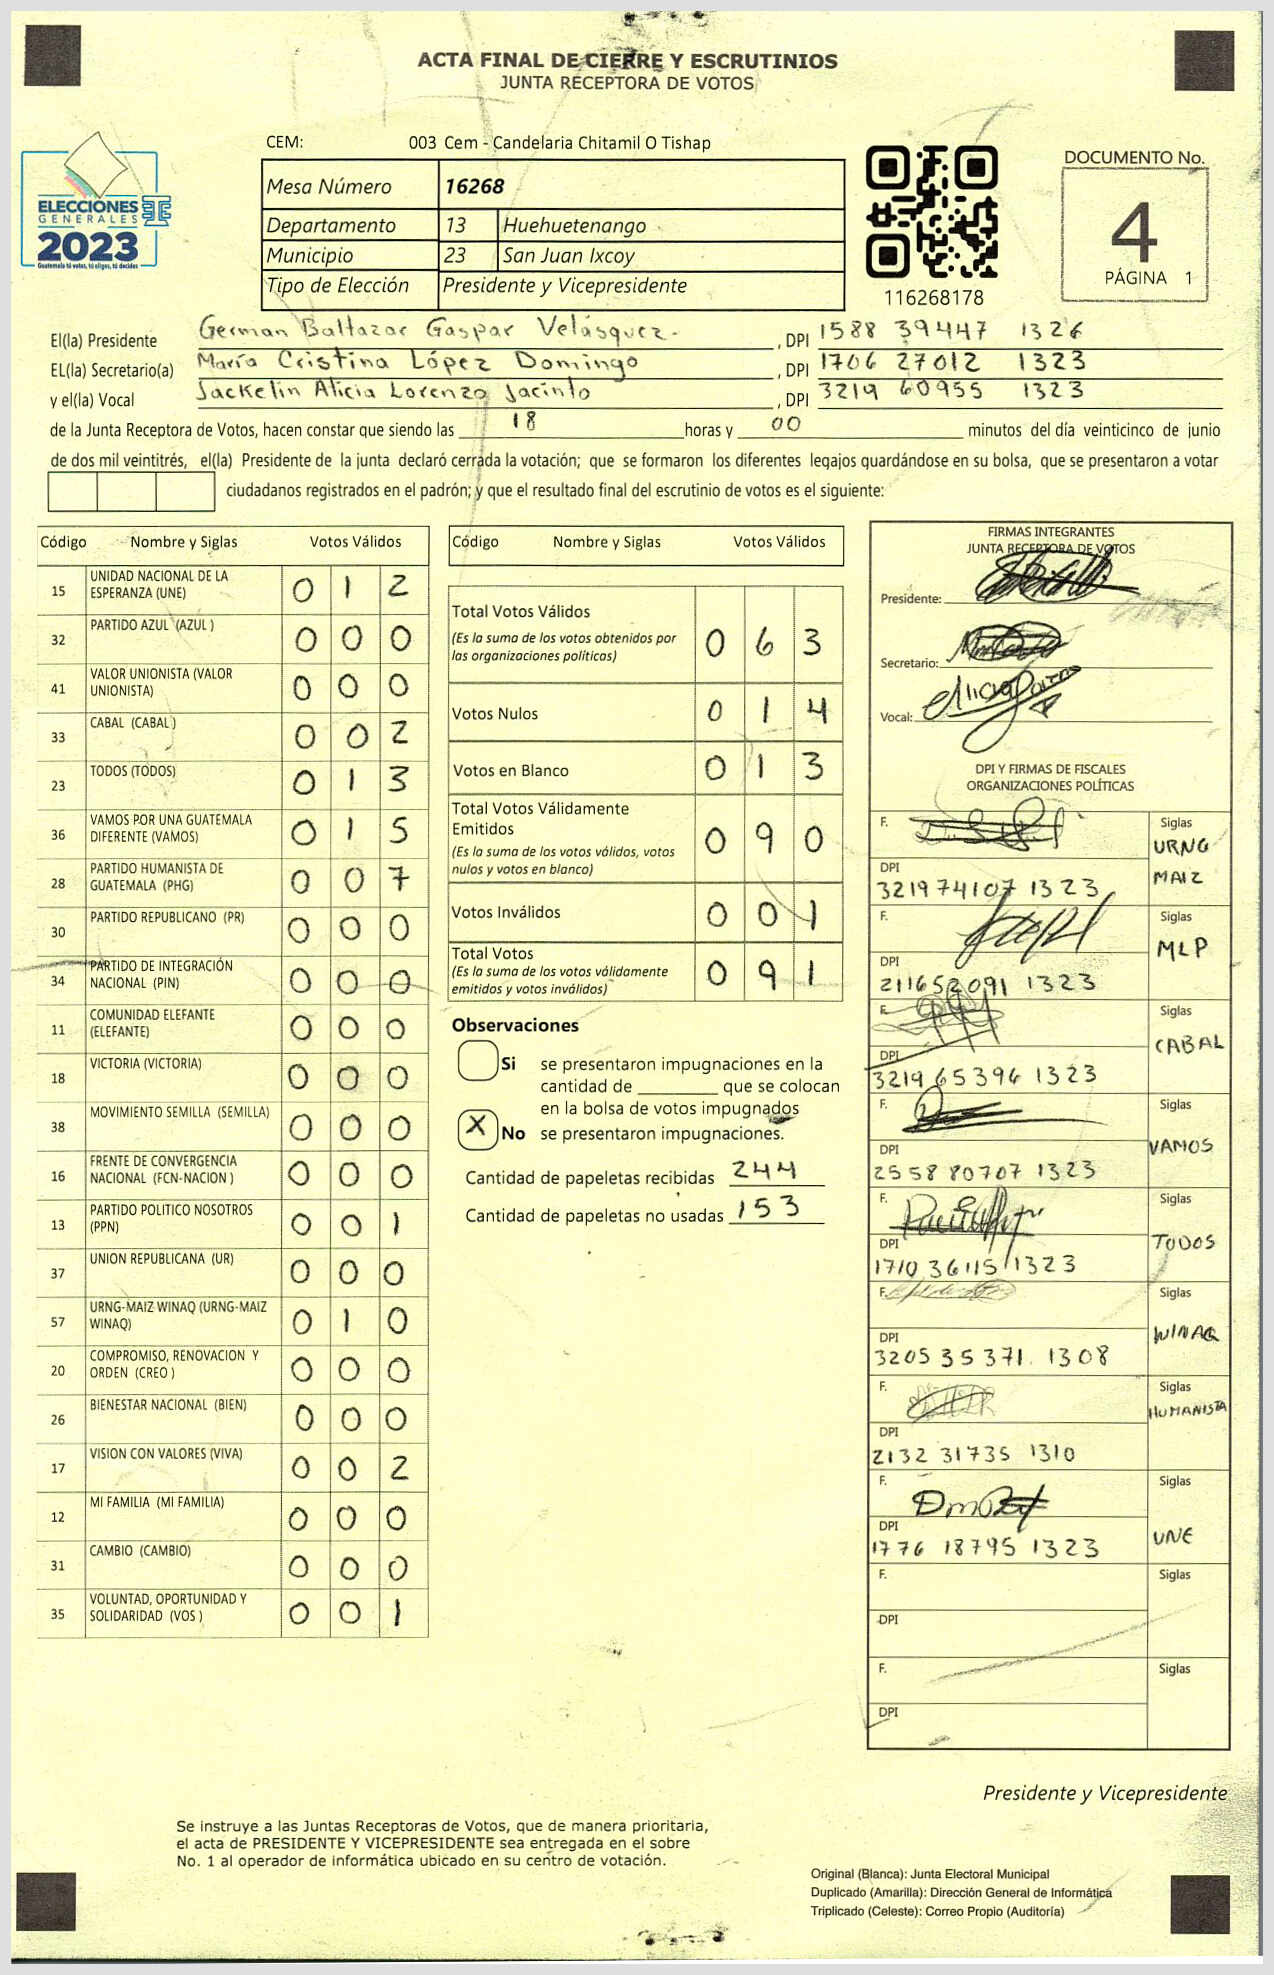 ACTA FINAL DE CIERRE Y ESCRUTINIOS
JUNTA RECEPTORA DE VOTOS
CEM: 003 Cem - Candelaria Chitamil O Tishap
ELECCIONES
GENERALES
2023
Guatemala tú votas, tú eliges, tú decides
Mesa Número 16268
Departamento 13 Huehuetenango
Municipio 23 San Juan Ixcoy
Tipo de Elección Presidente y Vicepresidente
116268178
DOCUMENTO No.
4
PÁGINA 1
El(la) Presidente German Baltazar Gaspar Velásquez , DPI 1588 39447 1326
EL(la) Secretario(a) María Cristina López Domingo , DPI 1706 27012 1323
y el(la) Vocal Jackelin Alicia Lorenzo Jacinto , DPI 3219 60955 1323
de la Junta Receptora de Votos, hacen constar que siendo las 18 horas y 00 minutos del día veinticinco de junio
de dos mil veintitrés, el(la) Presidente de la junta declaró cerrada la votación; que se formaron los diferentes legajos guardándose en su bolsa, que se presentaron a votar
ciudadanos registrados en el padrón; y que el resultado final del escrutinio de votos es el siguiente:
Código Nombre y Siglas Votos Válidos
15 UNIDAD NACIONAL DE LA ESPERANZA (UNE) 0 1 2
32 PARTIDO AZUL (AZUL ) 0 0 0
41 VALOR UNIONISTA (VALOR UNIONISTA) 0 0 0
33 CABAL (CABAL ) 0 0 2
23 TODOS (TODOS) 0 1 3
36 VAMOS POR UNA GUATEMALA DIFERENTE (VAMOS) 0 1 5
28 PARTIDO HUMANISTA DE GUATEMALA (PHG) 0 0 7
30 PARTIDO REPUBLICANO (PR) 0 0 0
34 PARTIDO DE INTEGRACIÓN NACIONAL (PIN) 0 0 0
11 COMUNIDAD ELEFANTE (ELEFANTE) 0 0 0
18 VICTORIA (VICTORIA) 0 0 0
38 MOVIMIENTO SEMILLA (SEMILLA) 0 0 0
16 FRENTE DE CONVERGENCIA NACIONAL (FCN-NACION ) 0 0 0
13 PARTIDO POLITICO NOSOTROS (PPN) 0 0 1
37 UNION REPUBLICANA (UR) 0 0 0
57 URNG-MAIZ WINAQ (URNG-MAIZ WINAQ) 0 1 0
20 COMPROMISO, RENOVACION Y ORDEN (CREO ) 0 0 0
26 BIENESTAR NACIONAL (BIEN) 0 0 0
17 VISION CON VALORES (VIVA) 0 0 2
12 MI FAMILIA (MI FAMILIA) 0 0 0
31 CAMBIO (CAMBIO) 0 0 0
35 VOLUNTAD, OPORTUNIDAD Y SOLIDARIDAD (VOS ) 0 0 1
Código Nombre y Siglas Votos Válidos
Total Votos Válidos 0 6 3
(Es la suma de los votos obtenidos por las organizaciones políticas)
Votos Nulos 0 1 4
Votos en Blanco 0 1 3
Total Votos Válidamente Emitidos 0 9 0
(Es la suma de los votos válidos, votos nulos y votos en blanco)
Votos Inválidos 0 0 1
Total Votos 0 9 1
(Es la suma de los votos válidamente emitidos y votos inválidos)
Observaciones
Si se presentaron impugnaciones en la
cantidad de ________ que se colocan
en la bolsa de votos impugnados
X No se presentaron impugnaciones.
Cantidad de papeletas recibidas 244
Cantidad de papeletas no usadas 153
FIRMAS INTEGRANTES
JUNTA RECEPTORA DE VOTOS
Presidente:
Secretario:
Vocal:
DPI Y FIRMAS DE FISCALES
ORGANIZACIONES POLÍTICAS
F. Siglas URNG MAIZ
DPI 3219 74107 1323
F. Siglas MLP
DPI 2116 52091 1323
F. Siglas CABAL
DPI 3219 65396 1323
F. Siglas VAMOS
DPI 2558 80707 1323
F. Siglas TODOS
DPI 1710 36115 1323
F. Siglas WINAQ
DPI 3205 35371 1308
F. Siglas HUMANISTA
DPI 2132 31735 1310
F. Siglas UNE
DPI 1776 18795 1323
F. Siglas
DPI
F. Siglas
DPI
Presidente y Vicepresidente
Se instruye a las Juntas Receptoras de Votos, que de manera prioritaria,
el acta de PRESIDENTE Y VICEPRESIDENTE sea entregada en el sobre
No. 1 al operador de informática ubicado en su centro de votación.
Original (Blanca): Junta Electoral Municipal
Duplicado (Amarilla): Dirección General de Informática
Triplicado (Celeste): Correo Propio (Auditoría)